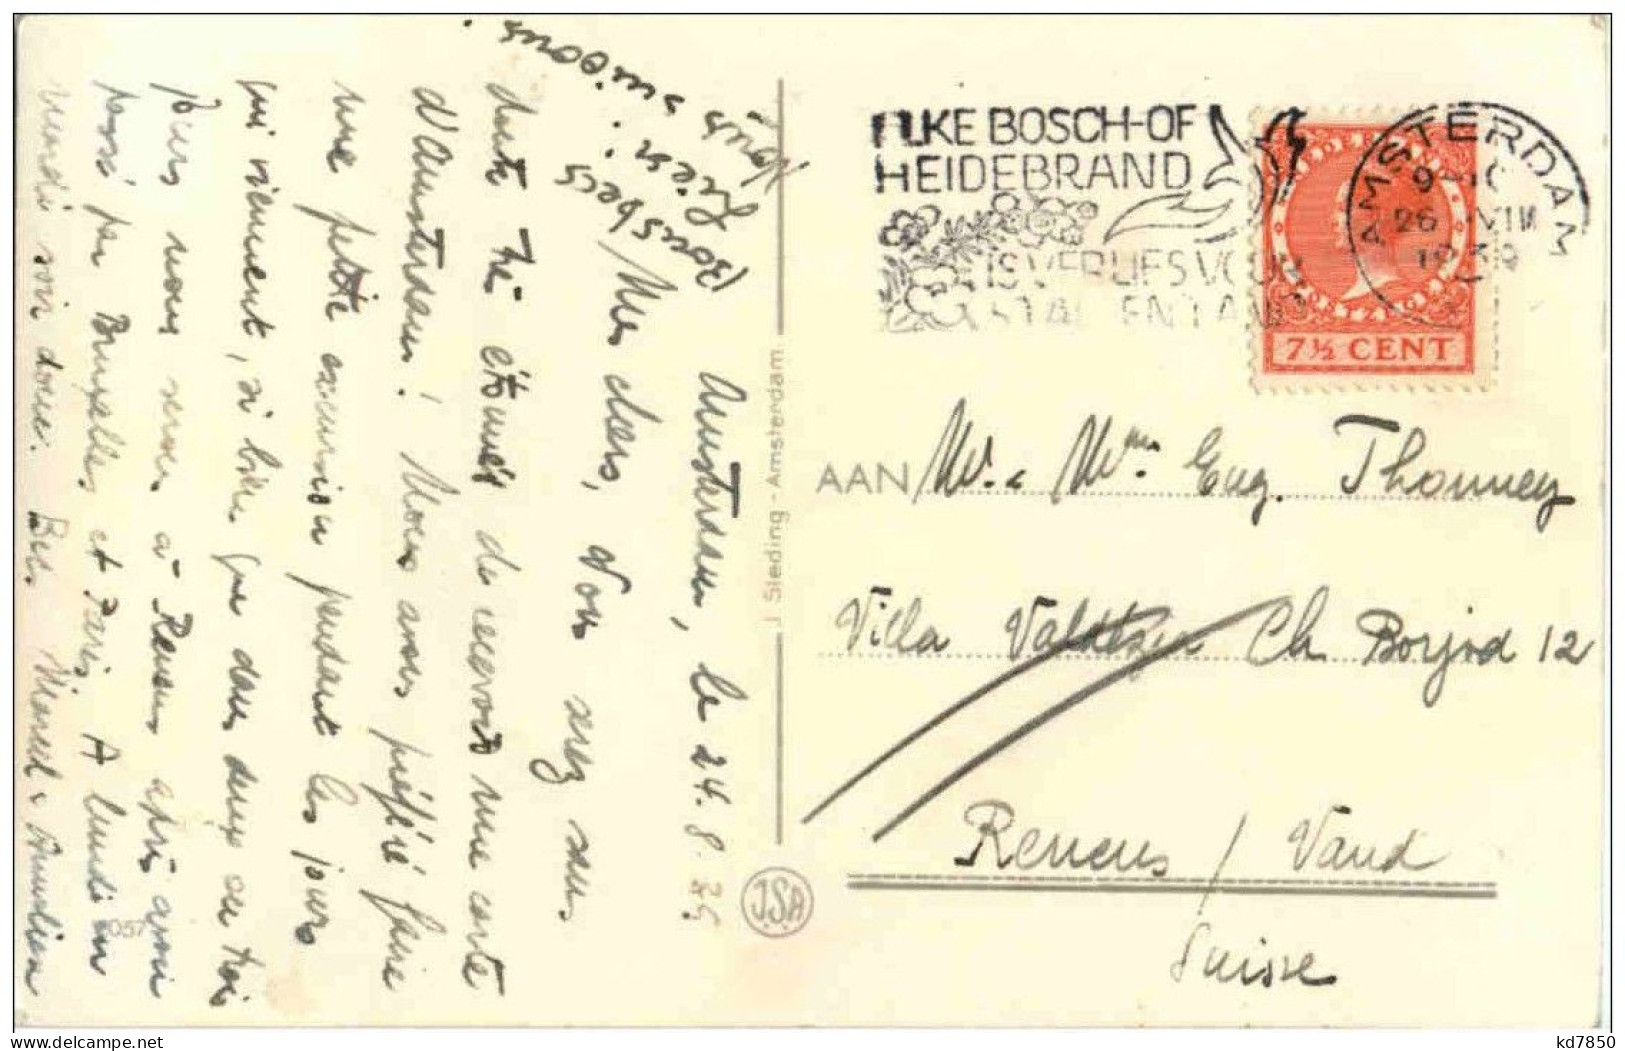 ELKE BOSCH-OF
HEIDEBRAND
IS VERLIES VOOR
STAD EN LAND
AMSTERDAM
26 VIII
1939
7½ CENT
AAN Mr. & Mme. Eug. Thonney
Villa Ch Borjod 12
Renens / Vaud
Suisse
J Sleding - Amsterdam
JSA
Amsterdam, le 24. 8. 39
Mes chers, Vous serez sans
doute très étonnés de recevoir une carte
d'Amsterdam! Nous avons préféré faire
une petite excursion pendant les jours
qui viennent, si bien que dans deux ou trois
jours nous serons à Renens après avoir
passé par Bruxelles et Paris. A lundi ou
mardi soir donc. Bec. Marcel &
Bons becs
Lucien!
Nous
6057
kd7850